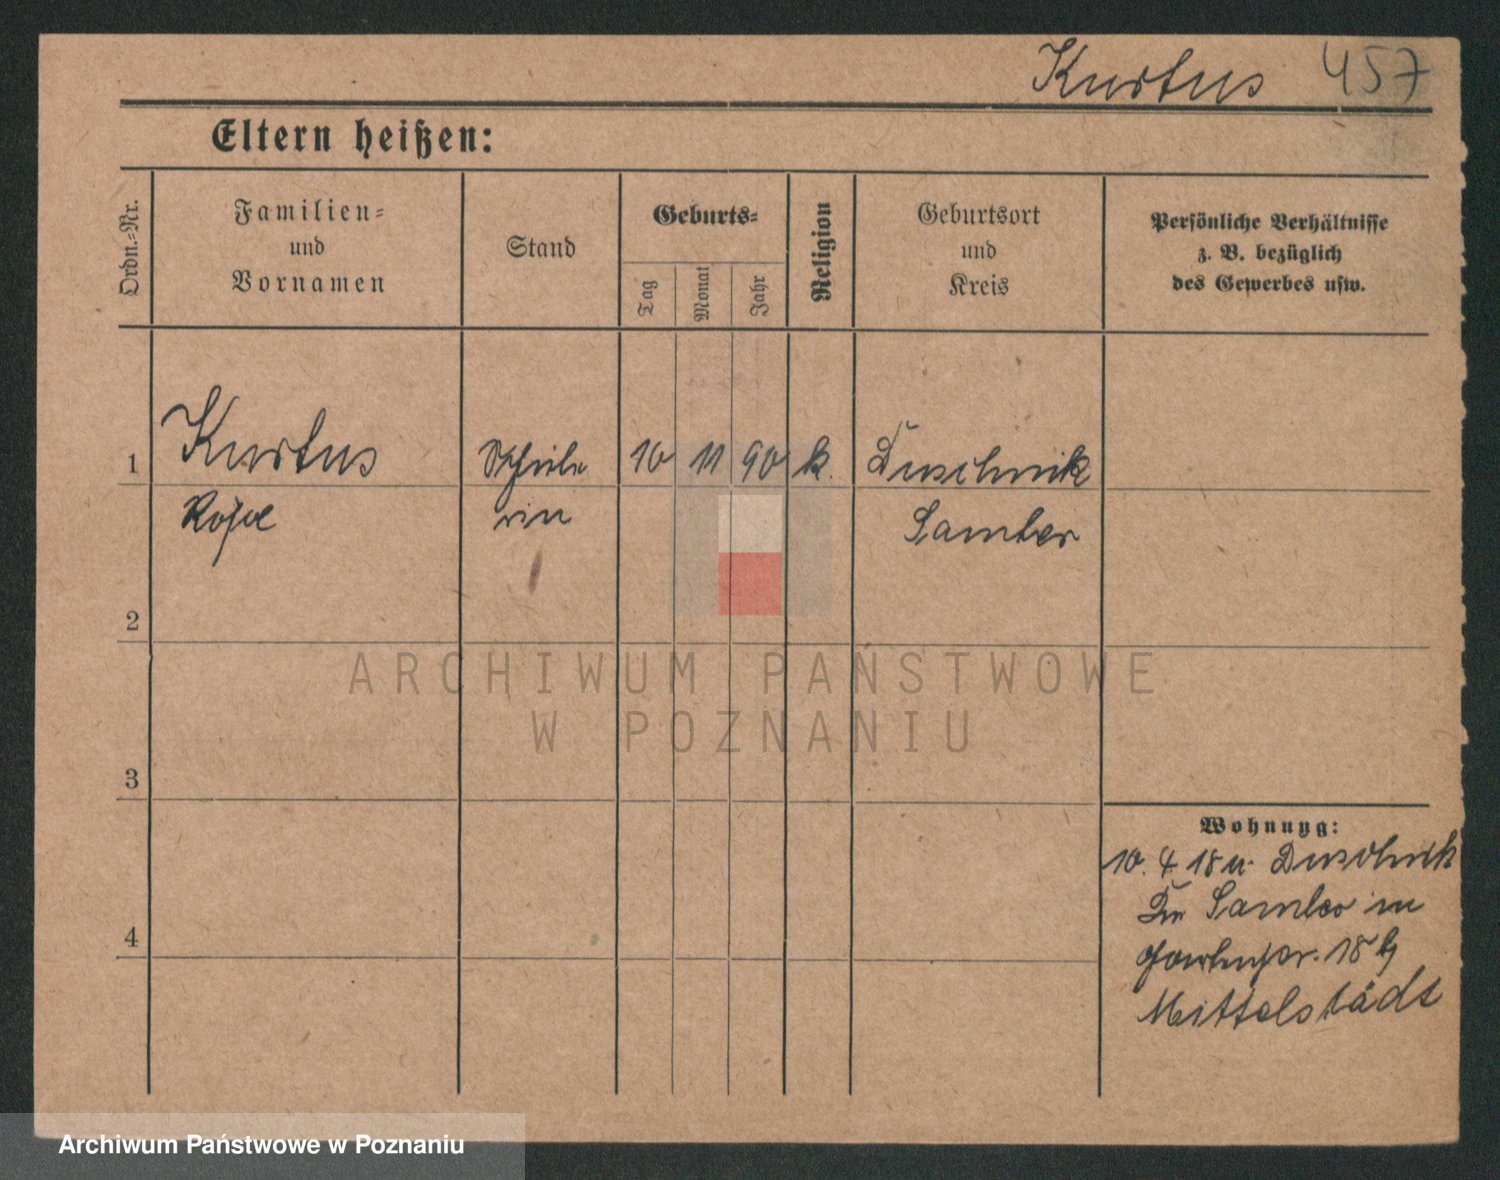 Kurtus 457
Eltern heißen:
Ordn.-Nr.
Familien-
und
Vornamen
Stand
Geburts-
Tag
Monat
Jahr
Religion
Geburtsort
und
Kreis
Persönliche Verhältnisse
z. B. bezüglich
des Gewerbes usw.
1 Kurtus 10 11 90 k. Duschnik
rin Samter
2
3
4
Wohnung:
10. 4 18 u. Duschnik
Samter in
18 b
Mittelstädt
ARCHIWUM PAŃSTWOWE
W POZNANIU
Archiwum Państwowe w Poznaniu